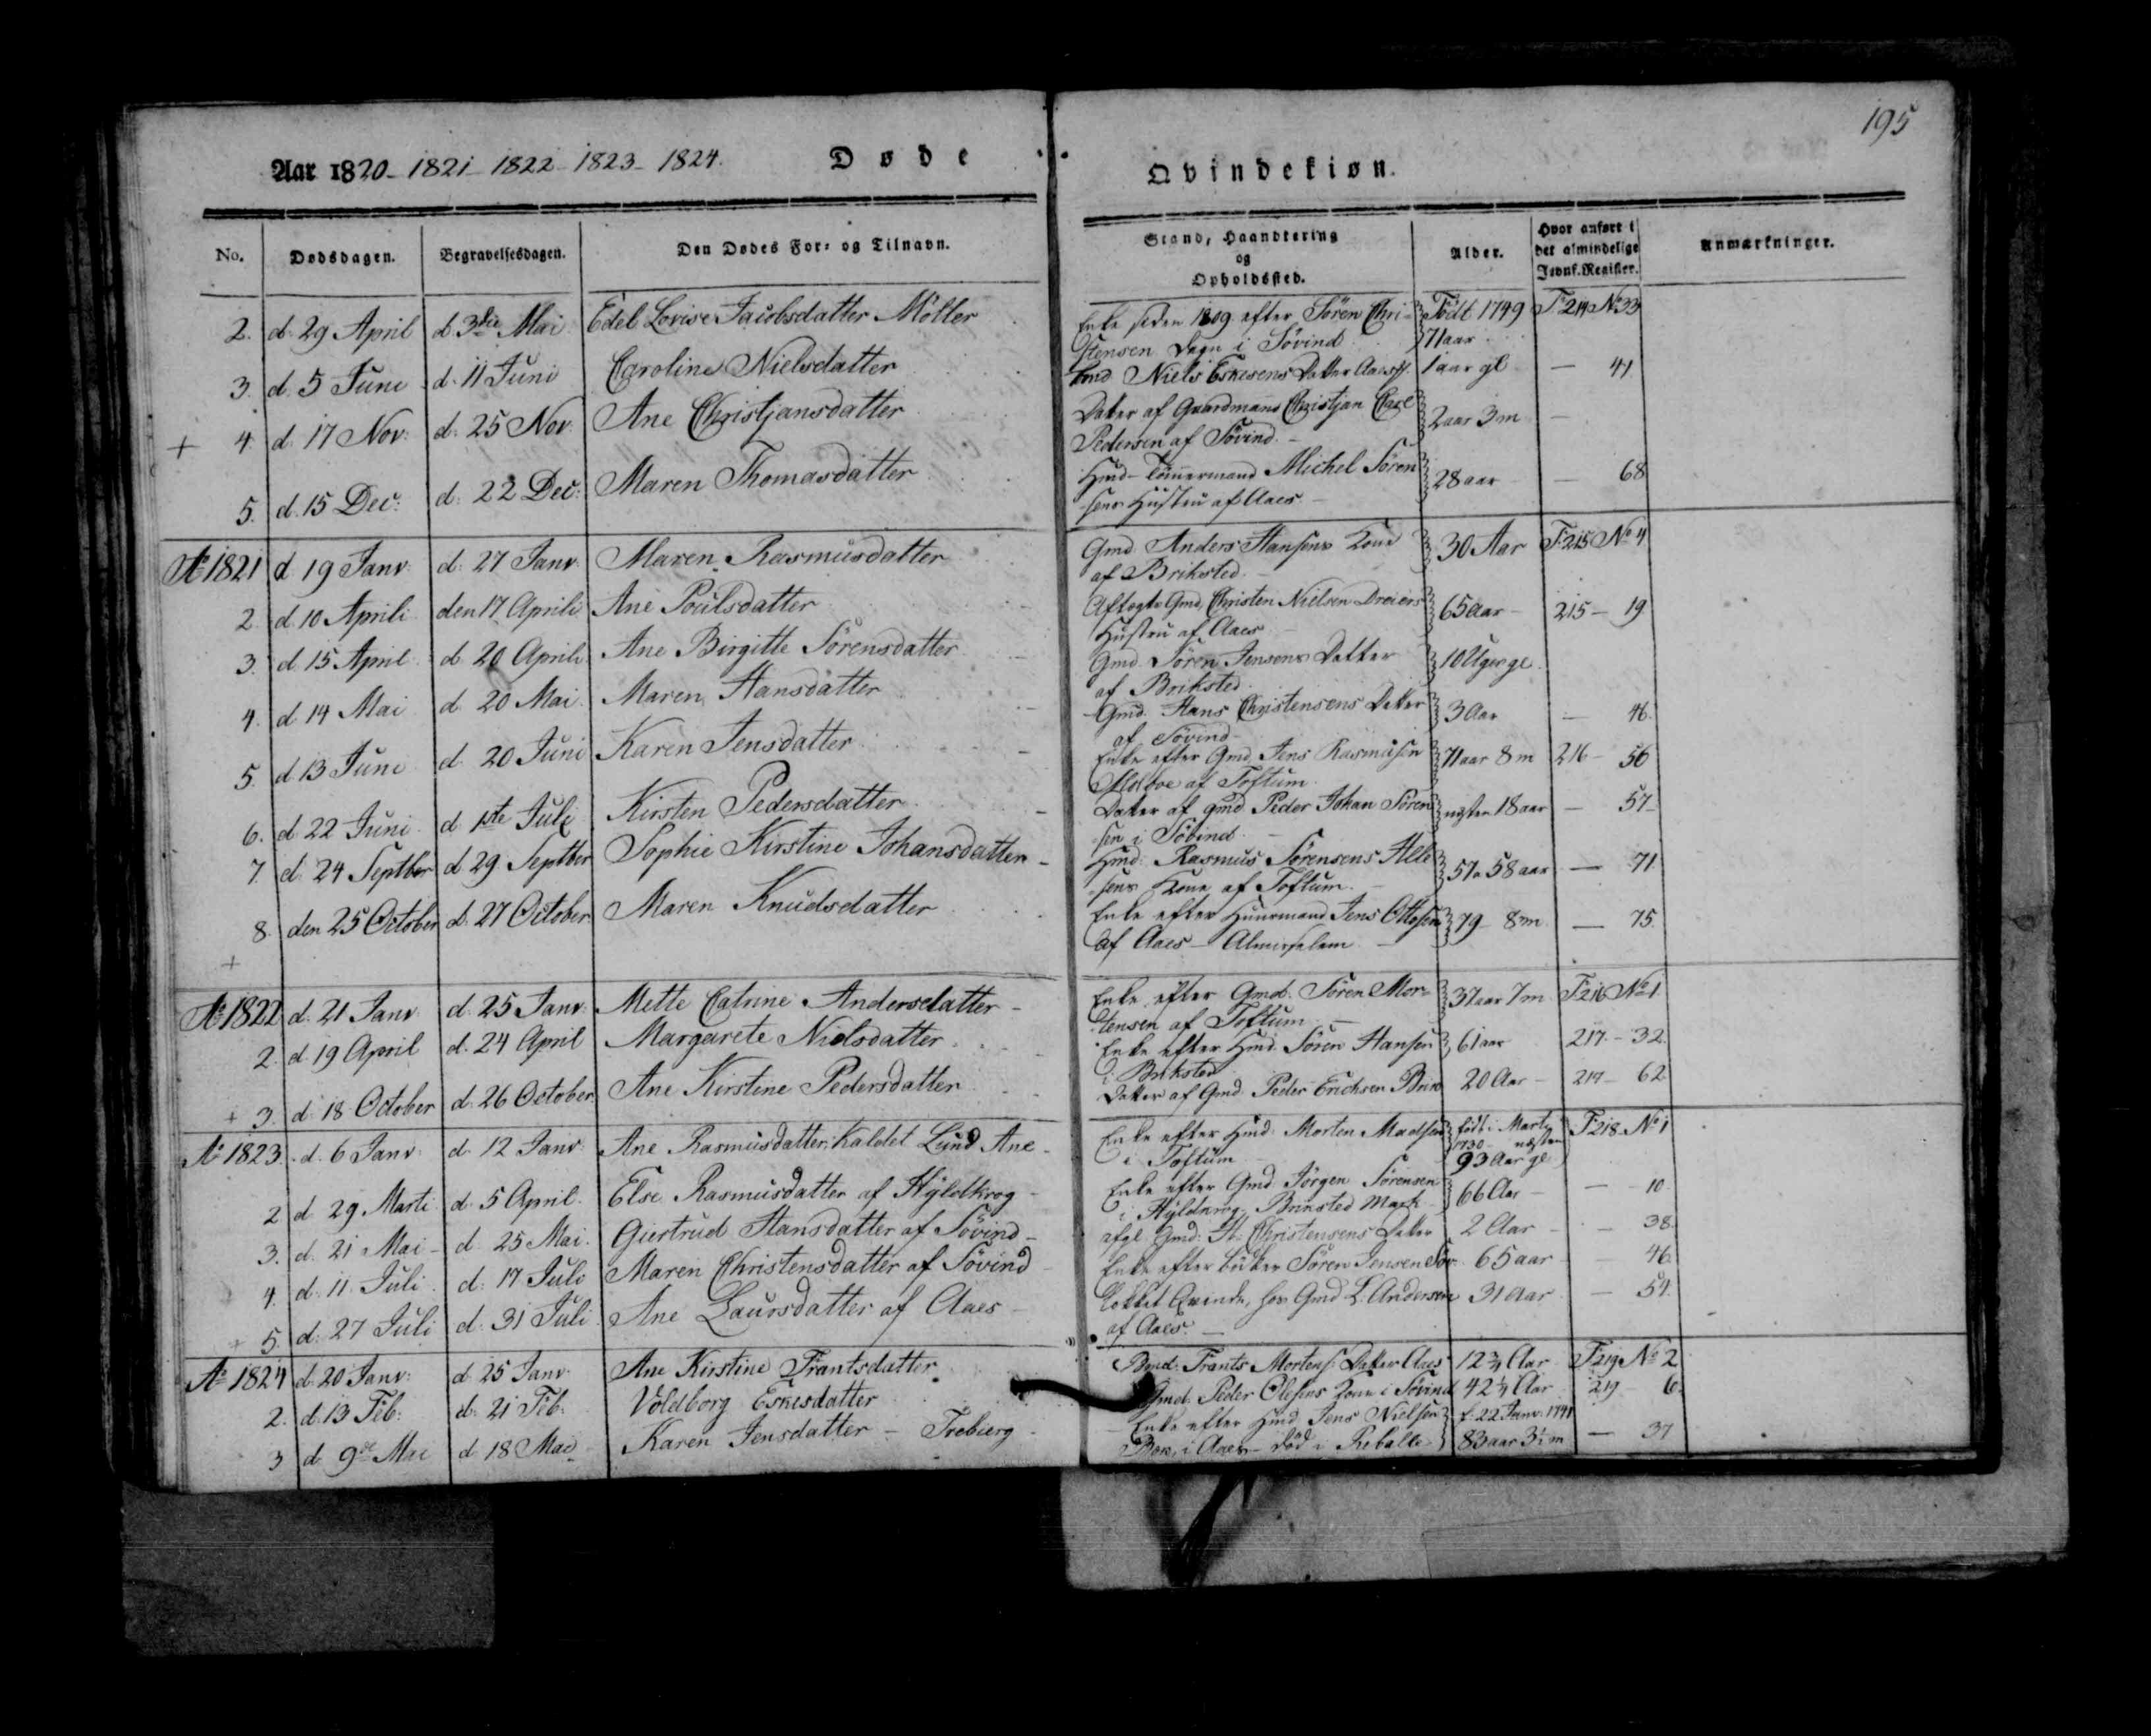 195
Aar 1820 - 1821 - 1822 - 1823 - 1824. Døde Qvindekiøn.
No. Dødsdagen. Begravelsesdagen. Den Dødes For- og Tilnavn. Stand, Haandtering og Opholdssted. Alder. Hvor anført i det almindelige Jevnf. Register. Anmærkninger.
2. d. 29 April d. 3die Mai Edel Lovise Jacobsdatter Möller Enke siden 1809 efter Sören Chri- Födt 1749 F. 214 No 33
stensen Degn i Sövind 71 aar
3. d. 5 Juni d. 11 Juni Caroline Nielsdatter Gmd Niels Eskesens Datter Aaes 1 aar gl. — 41
+ 4. d. 17 Nov: d. 25 Nov. Ane Christjansdatter Datter af Gaardmand Christjan Carl 2 aar 3 m —
Pedersen af Sövind. —
5. d. 15 Dec: d. 22 Dec: Maren Thomasdatter Hmd - Tömmermand Michel Sören 28 aar — 68
sens Hustru af Aaes —
Ao 1821 d 19 Janv: d. 27 Janv. Maren Rasmusdatter Gmd Anders Hansens Kone 30 Aar F. 215 No 4
af Briksted. —
2. d. 10 Aprili den 17 Aprili Ane Poulsdatter Aftægts Gmd, Christen Nielsen Dreiers 65 aar — 215 — 19
Hustru af Aaes —
3. d. 15 April d. 20 Aprili Ane Birgitte Sörensdatter Gmd. Sören Jensens Datter 10 Uger gl.
af Briksted
4. d 14 Mai d. 20 Mai. Maren Hansdatter Gmd. Hans Christensens Datter 3 Aar — 46.
af Sövind —
5. d 13 Juni d. 20 Juni Karen Jensdatter Enke efter Gmd. Jens Rasmusen 71 aar 8 m 216 — 56
af Toftum
6. d. 22 Juni d 1ste Juli Kirsten Pedersdatter Datter af Gmd Peder Johan Sören næsten 18 aar — 57 —
sen i Sövind. —
7. d. 24 Septber d. 29 Septber Sophie Kirstine Johansdatter — Hmd: Rasmus Sörensens Alle 57 a 58 aar — 71.
sens Kone af Toftum. —
8. den 25 October d. 27 October Maren Knudsdatter Enke efter Huusmand Jens Ottosen 79 — 8 m. — 75.
af Aaes —
+
Ao 1822 d. 21 Janv. d. 25 Janv. Mette Catrine Andersdatter — Enke efter Gmd. Sören Mor- 37 aar 7 m F. 216 No 1
tensen af Toftum —
2. d 19 April d. 24 April Margarete Nielsdatter Enke efter Hmd. Sören Hansen 61 aar 217. — 32.
i Briksted
+ 3. d. 18 October d. 26 October Ane Kirstine Pedersdatter Datter af Gmd. Peder Erichsen Brik 20 Aar — 217 — 62
Ao 1823. d. 6 Janv. d. 12 Janv. Ane Rasmusdatter, Kaldet Lund Ane — Enke efter Hmd. Morten Madsen födt i Marts F. 218 No 1
i Toftum 1730 — næsten
93 Aar gl
2 d. 29 Marti d. 5 April. Else Rasmusdatter af Hyldkrog — Enke efter Gmd Jörgen Sörensen 66 Aar — — 10
i Hyldkrog, Briksted Mark —
3. d. 21 Mai — d. 25 Mai. Giertrud Hansdatter af Sövind — Gmd: H. Christensens Datter 2 Aar — — 38.
4. d. 11 Juli d. 17 Juli Maren Christensdatter af Sövind Enke efter Sören Jensen Söv. 65 aar — — 46.
+ 5. d. 27 Juli d. 31 Juli. Ane Laursdatter af Aaes — Qvinde, hos Gmd L. Andersen 31 Aar — 54.
af Aaes. —
Ao 1824 d. 20 Janv: d. 25 Janv. Ane Kirstine Frantsdatter Frants Mortens: Datter Aaes 12 3/4 Aar F. 219 No 2
2. d. 13 Feb: d. 21 Feb. Voldborg Eskesdatter Gmd. Peder Olesens Kone i Sövind 42 1/4 Aar 219 6.
3 d. 9de Mai d. 18 Mai — Karen Jensdatter — Trebierg — Enke efter Hmd Jens Nielsen f: 22 Janv: 1741
i Aaes — död i Reballe 83 aar 3 1/2 m — 37